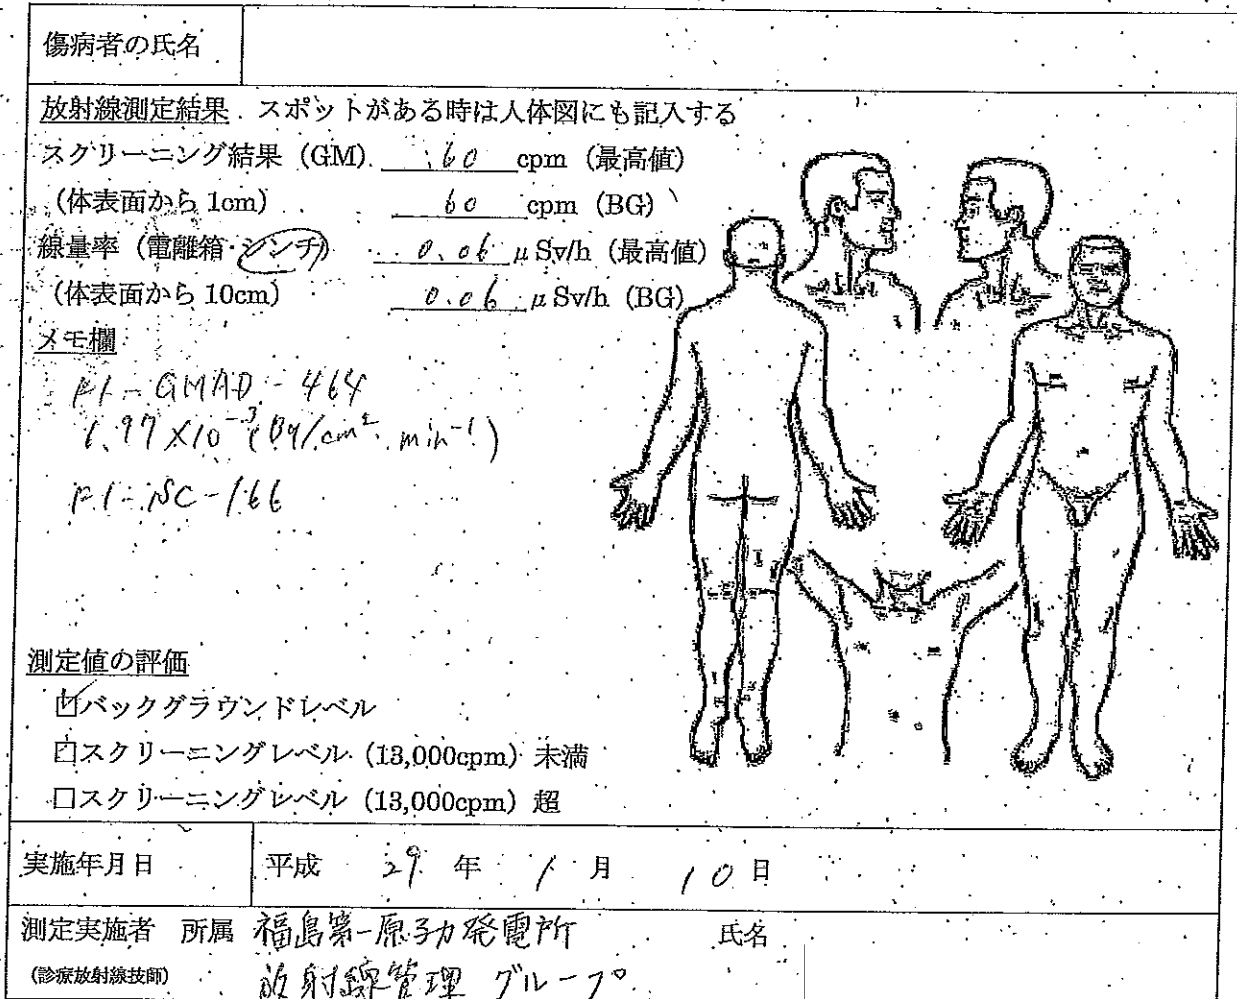 傷病者の氏名
放射線測定結果 スポットがある時は人体図にも記入する
スクリーニング結果 (GM) 60 cpm (最高値)
(体表面から 1cm) 60 cpm (BG)
線量率 (電離箱・シンチ) 0.06 μSv/h (最高値)
(体表面から 10cm) 0.06 μSv/h (BG)
メモ欄
F1-GMAD-464
6.97×10⁻³ (Bq/cm²・min⁻¹)
F1-NSC-166
測定値の評価
☑バックグラウンドレベル
□スクリーニングレベル (13,000cpm) 未満
□スクリーニングレベル (13,000cpm) 超
実施年月日 平成 29 年 1 月 10 日
測定実施者 所属 福島第一原子力発電所 氏名
(診療放射線技師) 放射線管理グループ